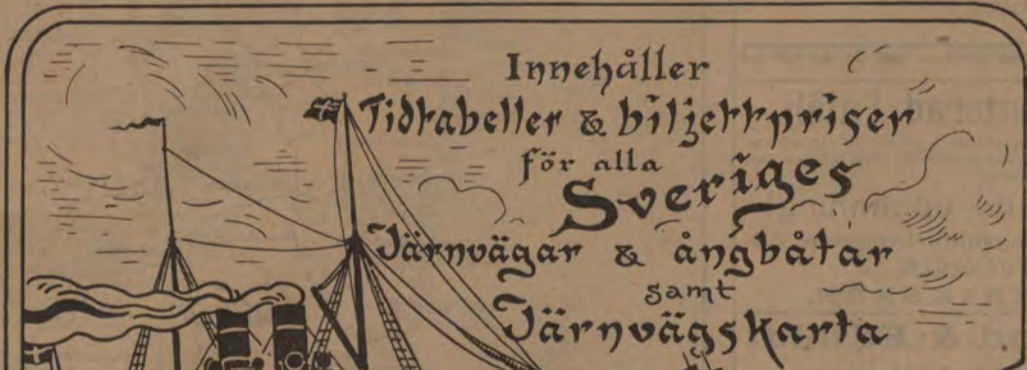 Innehåller
Tidtabeller & biljettpriser
för alla
Sveriges
Järnvägar & ångbåtar
samt
Järnvägskarta